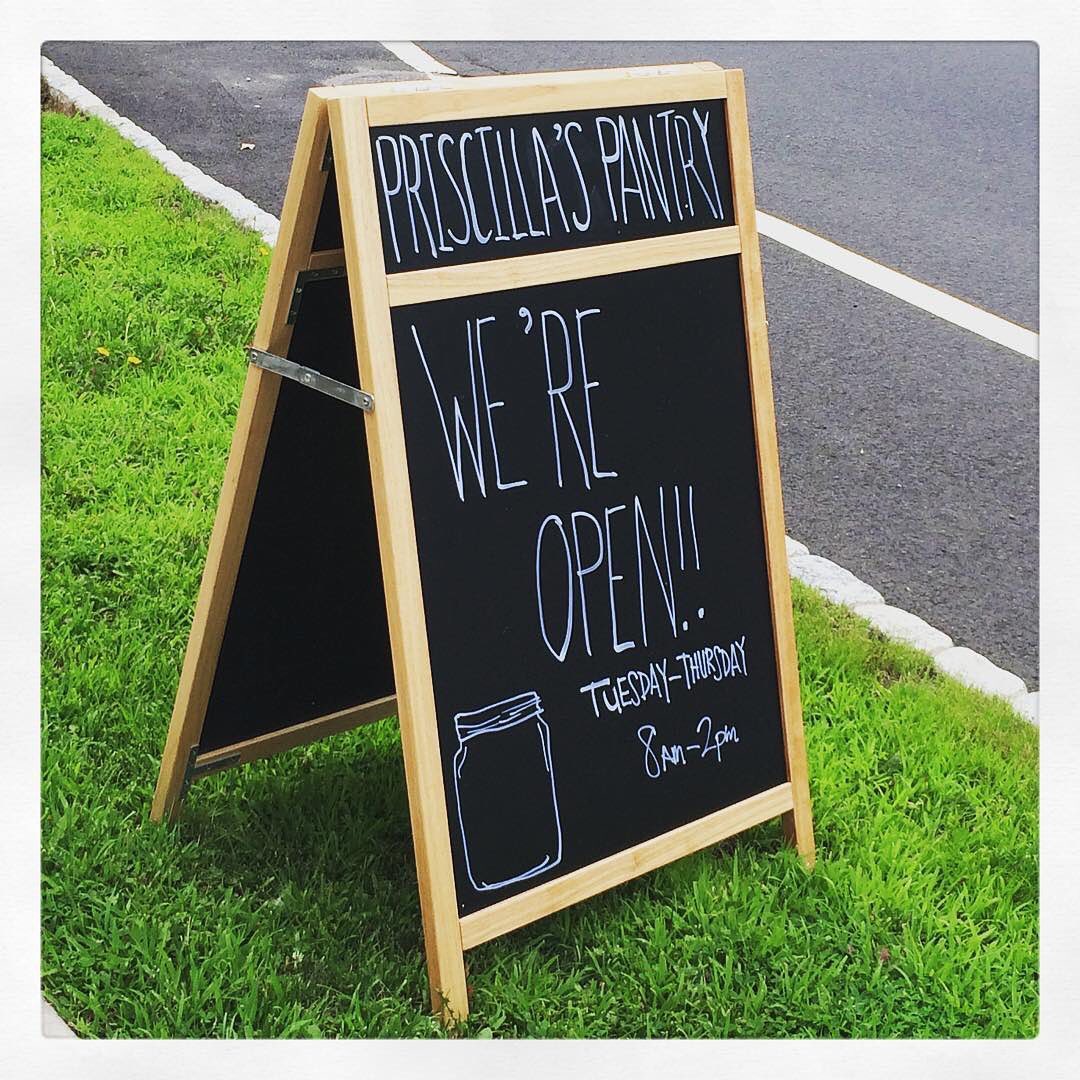 PRISCILLA'S PANTRY
WE'RE
OPEN!!
TUESDAY-THURSDAY
8AM-2pm